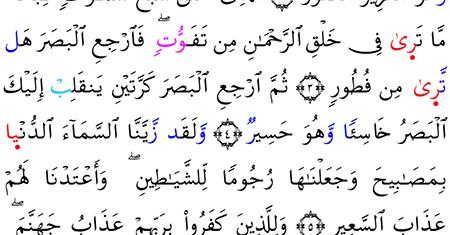 مَّا تَرىٰ فِى خَلْقِ ٱلرَّحْمَٰنِ مِن تَفَوُّتٍۖ فَٱرْجِعِ ٱلْبَصَرَ هَل
تَّرىٰ مِن فُطُورٍ ﴿٣﴾ ثُمَّ ٱرْجِعِ ٱلْبَصَرَ كَرَّتَيْنِ يَنقَلِبْ إِلَيْكَ
ٱلْبَصَرُ خَاسِئًا وَهُوَ حَسِيرٌ ﴿٤﴾ وَلَقَد زَّيَّنَّا ٱلسَّمَآءَ ٱلدُّنْيا
بِمَصَٰبِيحَ وَجَعَلْنَٰهَا رُجُومًا لِّلشَّيَٰطِينِۖ وَأَعْتَدْنَا لَهُمْ
عَذَابَ ٱلسَّعِيرِ ﴿٥﴾ وَلِلَّذِينَ كَفَرُوا۟ بِرَبِّهِمْ عَذَابُ جَهَنَّمَۖ